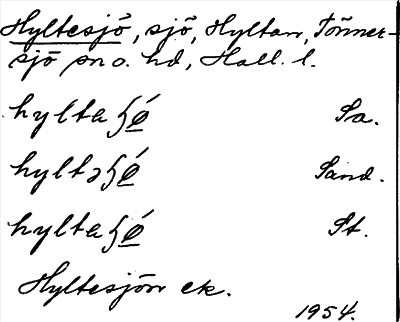 Hyltesjö, sjö, Hyltan, Tönner-
sjö sn o. hd, Hall. l.
hyltaɧö́ Sa.
hyltɔɧö́ Sand.
hyltaɧö́ St.
Hyltesjön ek.
1954.